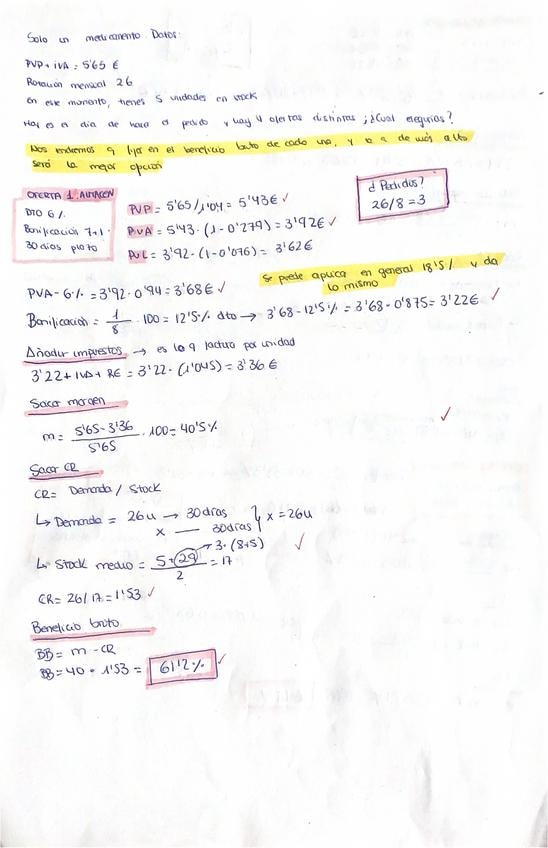 Solo un medicamento Datos:
PVP + IVA: 5'65 €
Rotación mensual 26
En este momento, tienes 5 unidades en stock
Hoy es el día de hacer el pedido y hay 4 ofertas distintas ¿¿Cual elegirias?
Nos q fijar en el beneficio bruto de cada una, y la q de más alto
será la mejor opción
OFERTA 1. ALMACÉN
DTO 6%
Bonificación 7+1
30 días plazo
PVP = 5'65/1'04 = 5'43€ ✓
PVA = 5'43 · (1-0'279) = 3'92€ ✓
PVL = 3'92 · (1-0'076) = 3'62€
d Pedidos?
26/8 = 3
Se puede aplicar en general 18'5% y da
lo mismo
PVA - 6% = 3'92 · 0'94 = 3'68€ ✓
Bonificación = 1/8 · 100 = 12'5% dto → 3'68 - 12'5% = 3'68 · 0'875 = 3'22€ ✓
Añadir impuestos → es lo q factura por unidad
3'22 + IVA + RE = 3'22 · (1'045) = 3'36 €
Sacar margen
m = 5'65 - 3'36 / 5'65 · 100 = 40'5% ✓
Sacar CR
CR = Demanda / Stock
↳ Demanda = 26u → 30 días } x = 26u
x — 30 días
→ 3 · (8+5) ✓
↳ Stock medio = 5 + 29 / 2 = 17
CR = 26/17 = 1'53 ✓
Beneficio bruto
BB = m · CR
BB = 40 · 1'53 = 61'2% ✓